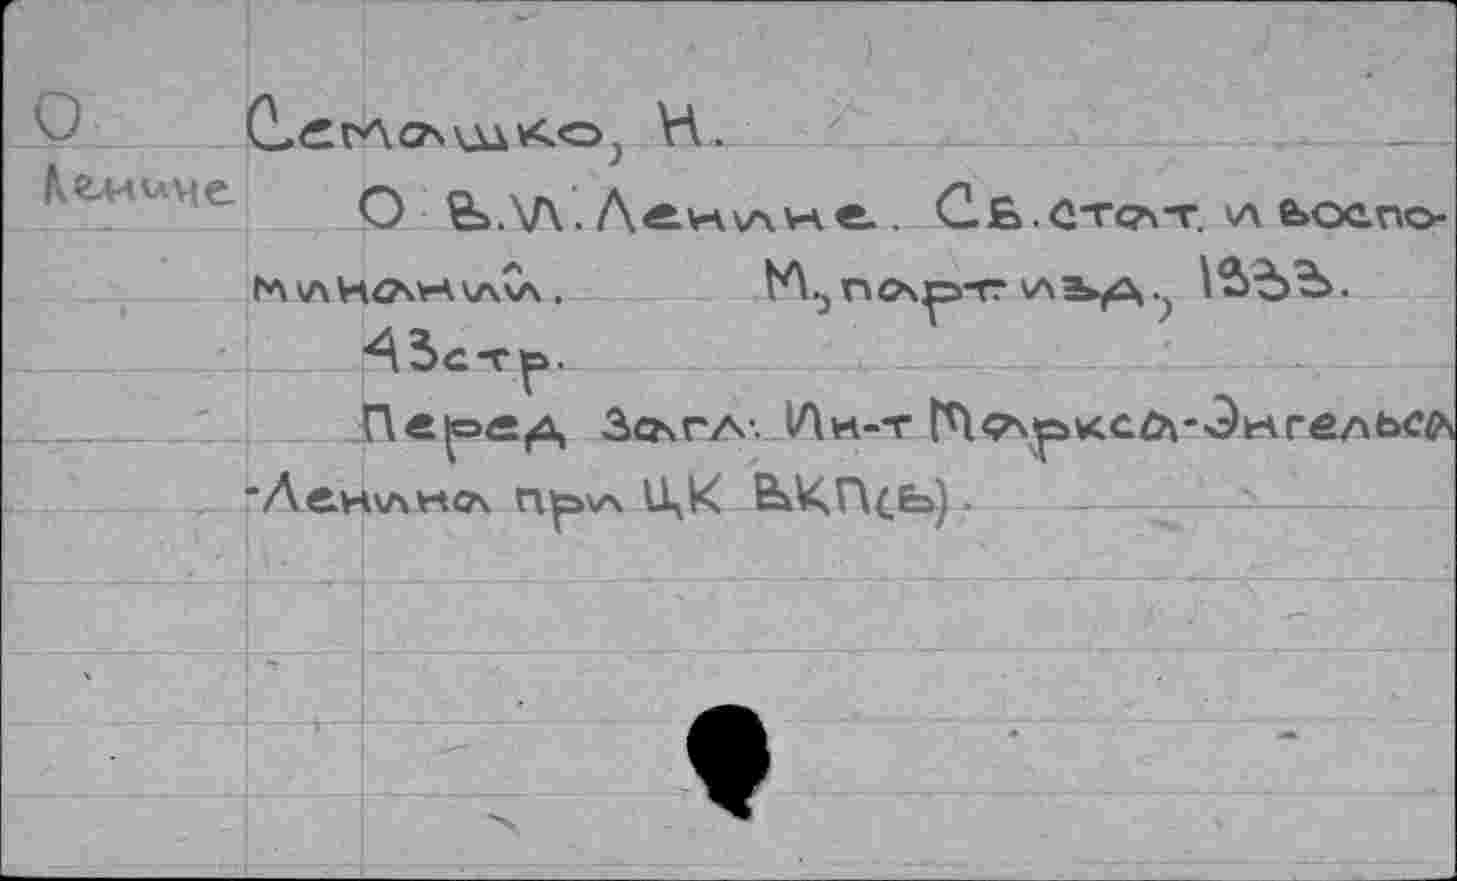 О Семашко, Н.
Ленине
О В.И. Ленине. Сб. стат. и воспо-
минаний. М., партизд., 1933.
43стр.
Перед загл: Ин-т Маркса-Энгельса
-Ленина при ЦК ВКП(б).